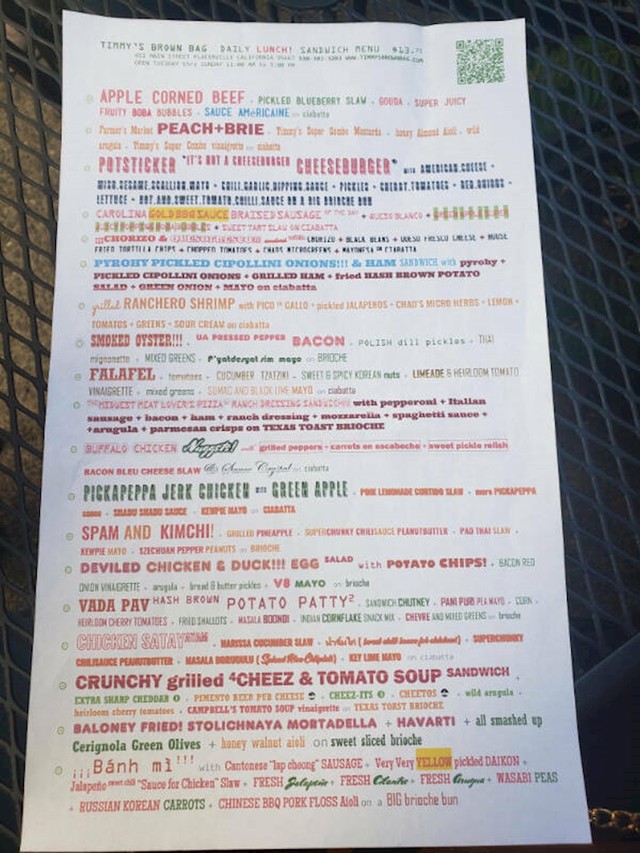 TIMMY'S BROWN BAG DAILY LUNCH! SANDWICH MENU $13.75
MAIN STREET PLACERVILLE CALIFORNIA WWW.TIMMYSBROWNBAG.COM
OPEN TUESDAY thru SUNDAY 11:00 AM to 3:00 PM
APPLE CORNED BEEF + PICKLED BLUEBERRY SLAW + GOUDA + SUPER JUICY
FRUITY BOBA BUBBLES + SAUCE AMéRICAINE on ciabatta
Farmer's Market PEACH+BRIE + Timmy's Super Combo Mustards + honey Almond Aioli + wild
arugula + Timmy's Super Combo vinaigrette on ciabatta
POTSTICKER "IT'S NOT A CHEESEBURGER CHEESEBURGER" with AMERICAN CHEESE +
MISO.SESAME.SCALLION.MAYO + CHILI.GARLIC.DIPPING.SAUCE + PICKLES + CHERRY.TOMATOES + RED.ONIONS +
LETTUCE + HOT.AND.SWEET.TOMATO.CHILLI.SAUCE ON A BIG BRIOCHE BUN
CAROLINA GOLD BBQ SAUCE BRAISED SAUSAGE OF THE DAY + QUESO BLANCO +
+ SWEET TART SLAW ON CIABATTA
¡¡¡CHORIZO & CHORIZO + BLACK BEANS + QUESO FRESCO CHEESE + HOUSE
FRIED TORTILLA CHIPS + CHOPPED TOMATOES + CHADS MICROGREENS + MAYONESA ON CIABATTA
PYROHY PICKLED CIPOLLINI ONIONS!!! & HAM SANDWICH with pyrohy +
PICKLED CIPOLLINI ONIONS + GRILLED HAM + fried HASH BROWN POTATO
SALAD + GREEN ONION + MAYO on ciabatta
grilled RANCHERO SHRIMP with PICO DE GALLO + pickled JALAPENOS + CHAD'S MICRO HERBS + LEMON +
TOMATOS + GREENS + SOUR CREAM on ciabatta
SMOKED OYSTER!!! + UA PRESSED PEPPER BACON + POLISH dill pickles + THAI
mignonette + MIXED GREENS + P'yatdesyat sim mayo on BRIOCHE
FALAFEL + tomatoes + CUCUMBER TZATZIKI + SWEET & SPICY KOREAN nuts + LIMEADE & HEIRLOOM TOMATO
VINAIGRETTE + mixed greens + SUMAC AND BLACK LIME MAYO on ciabatta
"THE MIDWEST MEAT LOVER'S PIZZA" RANCH DRESSING SANDWICH with pepperoni + Italian
sausage + bacon + ham + ranch dressing + mozzarella + spaghetti sauce +
+arugula + parmesan crisps on TEXAS TOAST BRIOCHE
BUFFALO CHICKEN Nugget! with grilled peppers + carrots en escabeche + sweet pickle relish
BACON BLEU CHEESE SLAW Sauce Crystal on ciabatta
PICKAPEPPA JERK CHICKEN with GREEN APPLE + PINK LEMONADE CURTIDO SLAW + more PICKAPEPPA
sauce + SHABU SHABU SAUCE + KEWPIE MAYO on CIABATTA
SPAM AND KIMCHI! + GRILLED PINEAPPLE + SUPERCHUNKY CHILISAUCE PEANUTBUTTER + PAD THAI SLAW +
KEWPIE MAYO + SZECHUAN PEPPER PEANUTS on BRIOCHE
DEVILED CHICKEN & DUCK!!! EGG SALAD with POTATO CHIPS! + BACON RED
ONION VINAIGRETTE + arugula + bread & butter pickles + V8 MAYO on brioche
VADA PAV HASH BROWN POTATO PATTY² + SANDWICH CHUTNEY + PANI PURI PEA MAYO + CORN +
HEIRLOOM CHERRY TOMATOES + FRIED SHALLOTS + MASALA BOONDI + INDIAN CORNFLAKE SNACK MIX + CHEVRE AND MIXED GREENS on brioche
CHICKEN SATAY + HARISSA CUCUMBER SLAW + + SUPERCHUNKY
CHILISAUCE PEANUTBUTTER + MASALA + KEY LIME MAYO on ciabatta
CRUNCHY grilled ⁴CHEEZ & TOMATO SOUP SANDWICH +
EXTRA SHARP CHEDDAR + PIMENTO BEER PUB CHEESE + CHEEZ-ITS + CHEETOS + wild arugula +
heirloom cherry tomatoes + CAMPBELL'S TOMATO SOUP vinaigrette on TEXAS TOAST BRIOCHE
BALONEY FRIED! STOLICHNAYA MORTADELLA + HAVARTI + all smashed up
Cerignola Green Olives + honey walnut aioli on sweet sliced brioche
¡¡¡Bánh mì!!! with Cantonese "lap cheong" SAUSAGE + Very Very YELLOW pickled DAIKON +
Jalapeño sweet chili "Sauce for Chicken" Slaw + FRESH Jalapeño + FRESH Cilantro + FRESH Arugua + WASABI PEAS
+ RUSSIAN KOREAN CARROTS + CHINESE BBQ PORK FLOSS Aioli on a BIG brioche bun